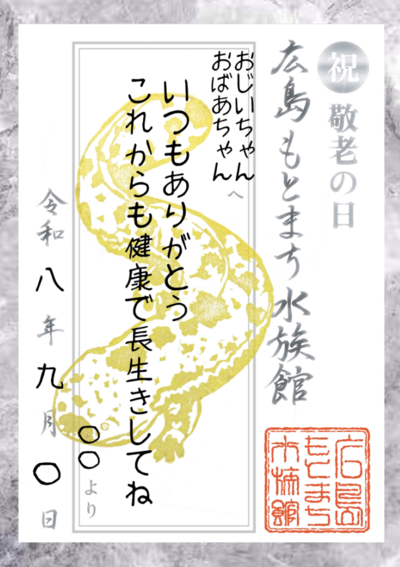 祝 敬老の日
広島もとまち水族館
おじいちゃん
おばあちゃん へ
いつもありがとう
これからも健康で長生きしてね
〇〇より
令和八年九月〇日
広島
もとまち
水族館